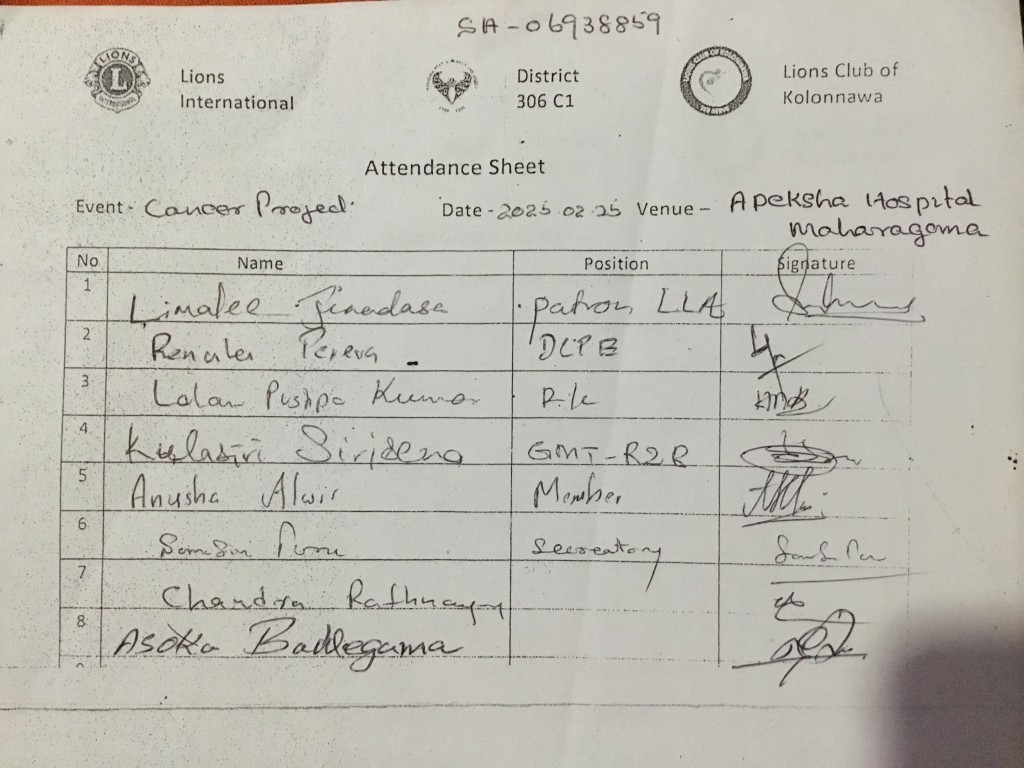 SA-06938859
LIONS
L
INTERNATIONAL
Lions International
District 306 C1
Lions Club of Kolonnawa
Attendance Sheet
Event - Cancer Project. Date - 2025.02.25 Venue - Apeksha Hospital Maharagama
No Name Position Signature
1 Limalee Jinadasa patron LLA
2 Renuka Perera DCPB
3 Lalan Pushpa Kumar
4 Kulasiri Sirisena GMT-R2R
5 Anusha Alwis Member
6 Secreatory
7 Chandra Rathnayay
8 Asoka Baddegama